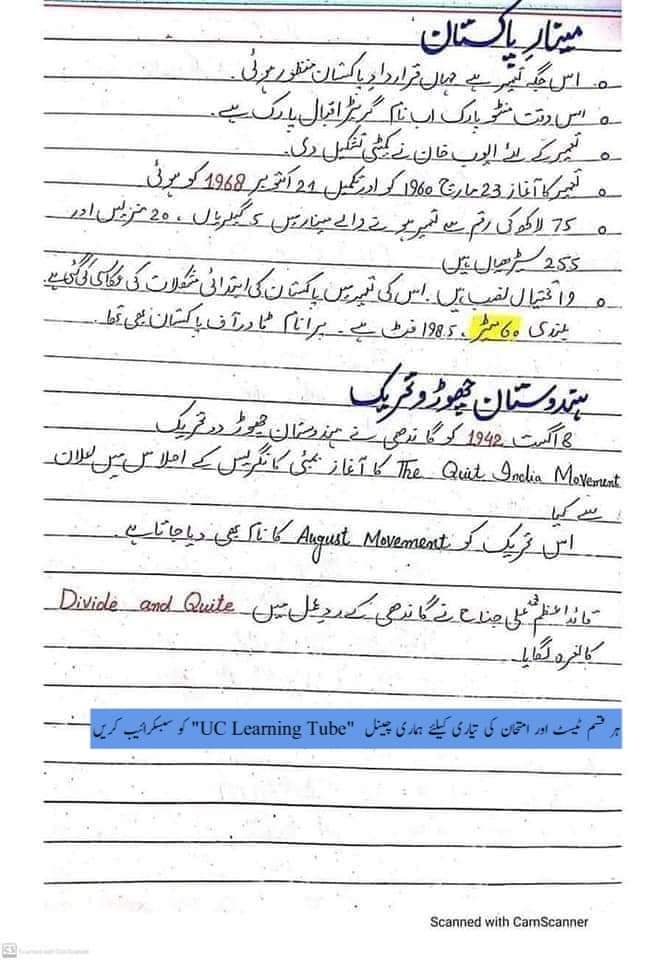 مینارِ پاکستان
○ اس جگہ تعمیر ہے جہاں قراردادِ پاکستان منظور ہوئی۔
○ اس وقت منٹو پارک اب نام گریٹر اقبال پارک ہے۔
○ تعمیر کے لئے ایوب خان نے کمیٹی تشکیل دی۔
○ تعمیر کا آغاز 23 مارچ 1960 کو اور تکمیل 21 اکتوبر 1968 کو ہوئی
○ 75 لاکھ کی رقم سے تعمیر ہونے والے مینار میں 5 گیلریاں ، 20 منزلیں اور
255 سیڑھیاں ہیں
○ 19 تختیاں نصب ہیں ۔ اس کی تعمیر میں پاکستان کی ابتدائی مشکلات کی عکاسی کی گئی ہے۔
بلندی 60 میٹر ، 198.5 فٹ ہے ۔ پرانا نام ٹاور آف پاکستان بھی تھا ۔
ہندوستان چھوڑ دو تحریک
8 اگست 1942 کو گاندھی نے ہندوستان چھوڑ دو تحریک
The Quit India Movement کا آغاز بمبئی کانگریس کے اجلاس میں اعلان
سے کیا
اس تحریک کو August Movement کا نام بھی دیا جاتا ہے۔
قائداعظم محمد علی جناح نے گاندھی کے ردِعمل میں Divide and Quite
کا نعرہ لگایا۔
ہر قسم ٹیسٹ اور امتحان کی تیاری کیلئے ہماری چینل "UC Learning Tube" کو سبسکرائیب کریں
Scanned with CamScanner
CS Scanned with CamScanner